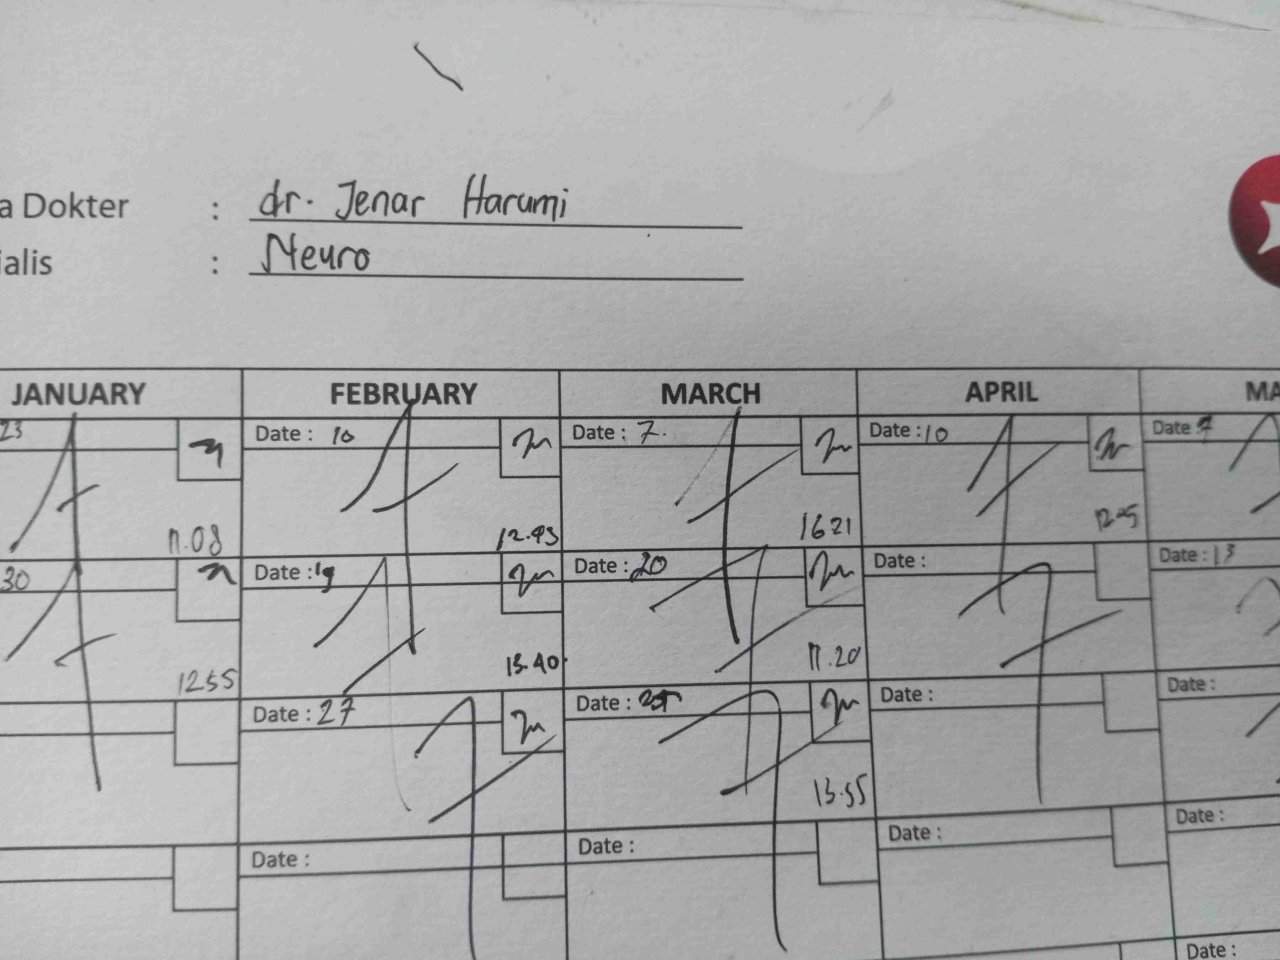 a Dokter : dr. Jenar Harumi
ialis : Neuro
JANUARY FEBRUARY MARCH APRIL MA
23 Date : 10 Date : 7. Date : 10 Date
17.08 12.45 1621 12.45
30 Date : 19 Date : 20 Date : Date : 13
1255 13.40 17.20
Date : 27 Date : 25 Date : Date :
13.55
Date : Date : Date : Date :
Date :